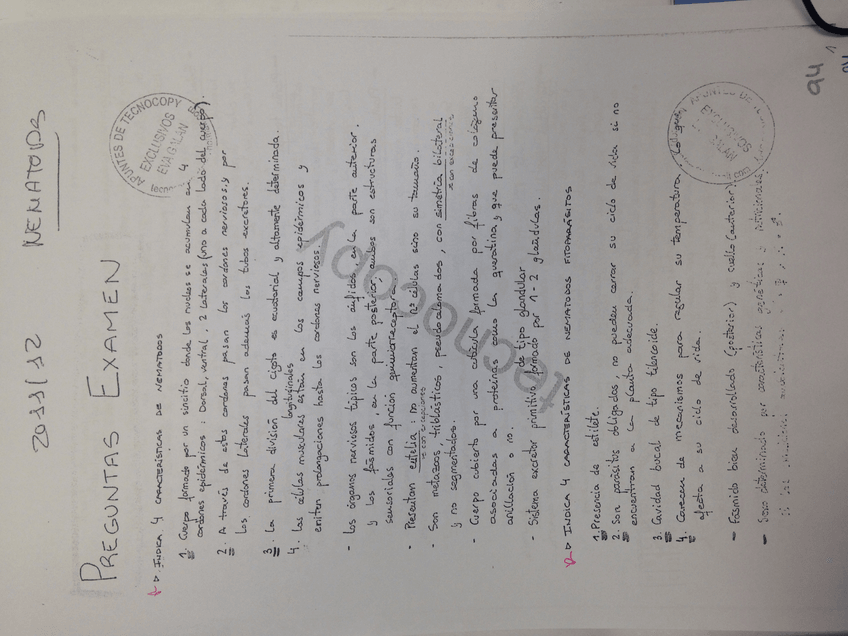 2011/12 NEMATODOS
PREGUNTAS EXAMEN
▷ INDICA 4 CARACTERÍSTICAS DE NEMATODOS
1. Cuerpo formado por un sincitio donde los núcleos se acumulan en 4
cordones epidérmicos: Dorsal, ventral, 2 laterales (uno a cada lado del cuerpo).
2. A través de estos cordones pasan los cordones nerviosos y por
los cordones laterales pasan además los tubos excretores.
3. La primera división del cigoto es ecuatorial y altamente determinada.
longitudinales
4. Las células musculares están en los campos epidérmicos y
emiten prolongaciones hasta los cordones nerviosos.
- Los órganos nerviosos típicos son los anfidos, en la parte anterior.
y los fásmidos, en la parte posterior, ambos son estructuras
sensoriales con función quimiorreceptora
- Presentan eutelia: no aumentan el nº células sino su tamaño.
con excepciones
- Son metazoos, triblásticos, pseudocelomados, con simetría bilateral
con excepciones
y no segmentados.
- Cuerpo cubierto por una cutícula formada por fibras de colágeno
asociadas a proteínas como la queratina y que puede presentar
anillación o no.
- Sistema excretor primitivo, de tipo glandular
formado por 1-2 glándulas.
▷ INDICA 4 CARACTERÍSTICAS DE NEMATODOS FITOPARÁSITOS
1. Presencia de estilete.
2. Son parásitos obligados no pueden cerrar su ciclo de vida si no
encuentran a la planta adecuada.
3. Cavidad bucal de tipo tilencoide.
4. Carecen de mecanismos para regular su temperatura, lo que
afecta a su ciclo de vida.
- Fásmido bien desarrollado (posterior) y cuello (anterior)
- Sexo determinado por características genéticas y nutricionales
APUNTES DE TECNOCOPY
EXCLUSIVOS
EVA GALÁN
APUNTES DE
EXCLUSIVOS
GALÁN
tecnocopy
94
1
94